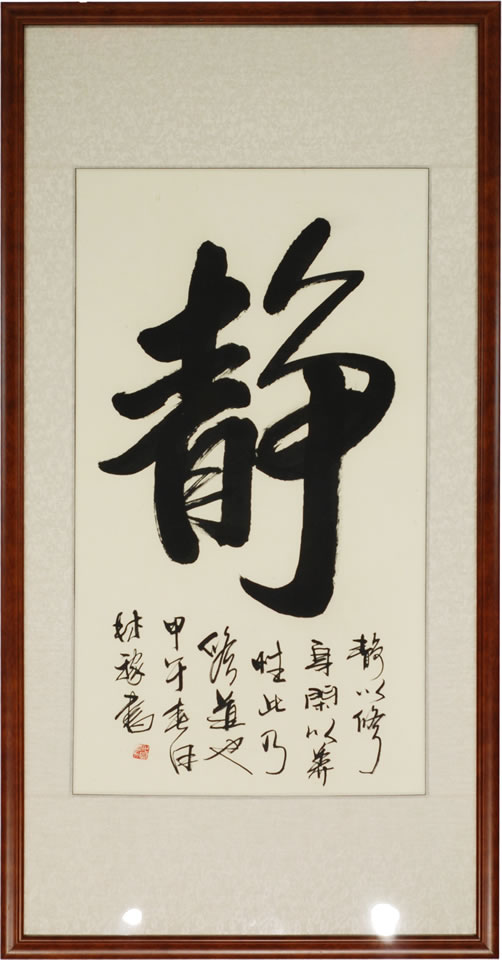 静
静以修
身閑以养
性此乃
道也
甲午春月
林書